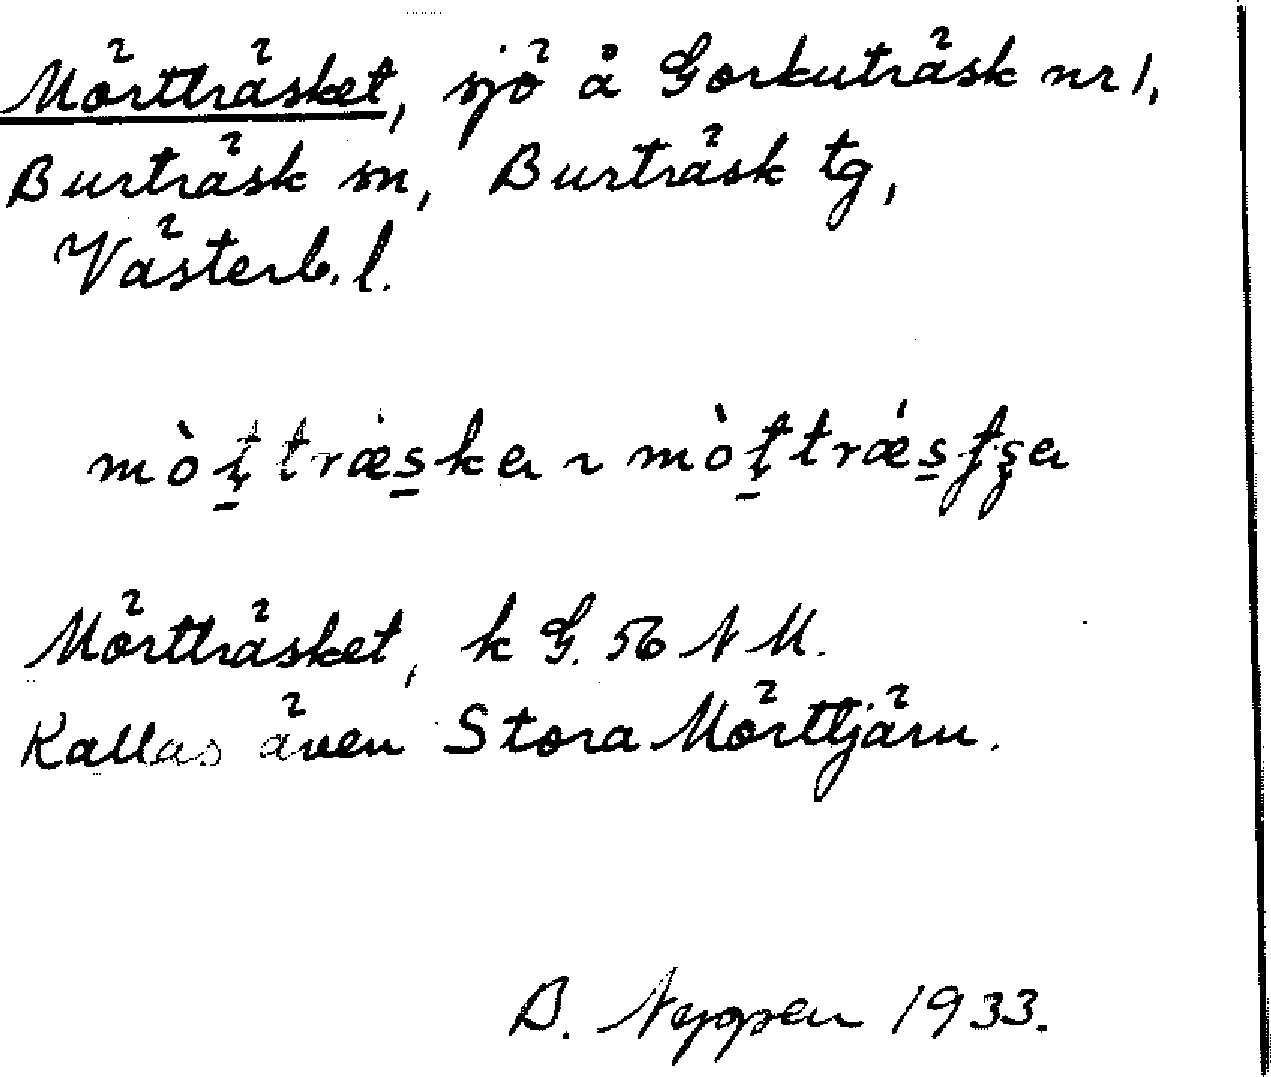 Mörtträsket, sjö å Gorkuträsk nr 1,
Burträsk sn, Burträsk tg,
Västerb. l.
mòṭtræ̀skea ~ mòṭtræ̀stşea
Mörtträsket, k G. 56 N M.
Kallas även Stora Mörttjärn.
B. Nyggen 1933.